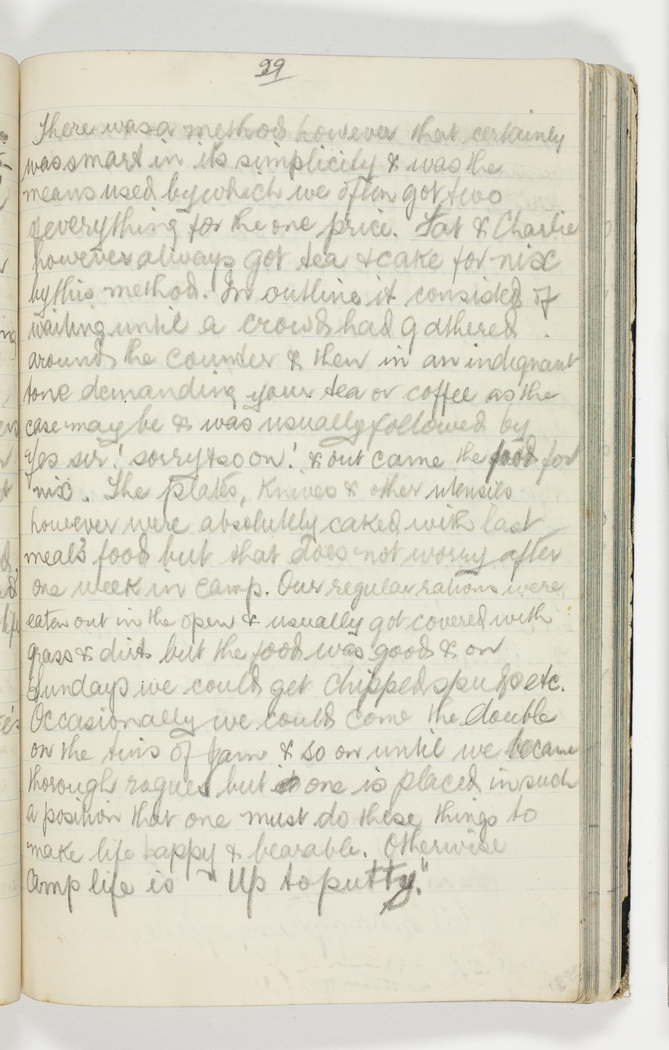 29
There was a method however that certainly
was smart in its simplicity & was the
means used by which we often got two
of everything for the one price. Fat & Charlie
however always got tea & cake for nix
by this method. In outline it consisted of
waiting until a crowd had gathered
around the counter & then in an indignant
tone demanding your tea or coffee as the
case may be & was usually followed by
Yes sir! sorry & so on! & out came the food for
nix. The plates, knives & other utensils
however were absolutely caked with last
meal's food but that does not worry after
one week in camp. Our regular rations were
eaten out in the open & usually got covered with
grass & dirt but the food was good & on
Sundays we could get chipped spuds etc.
Occasionally we could come the double
on the tins of jam & so on until we became
thorough rogues but one is placed in such
a position that one must do these things to
make life happy & bearable. Otherwise
Camp life is "Up to putty."